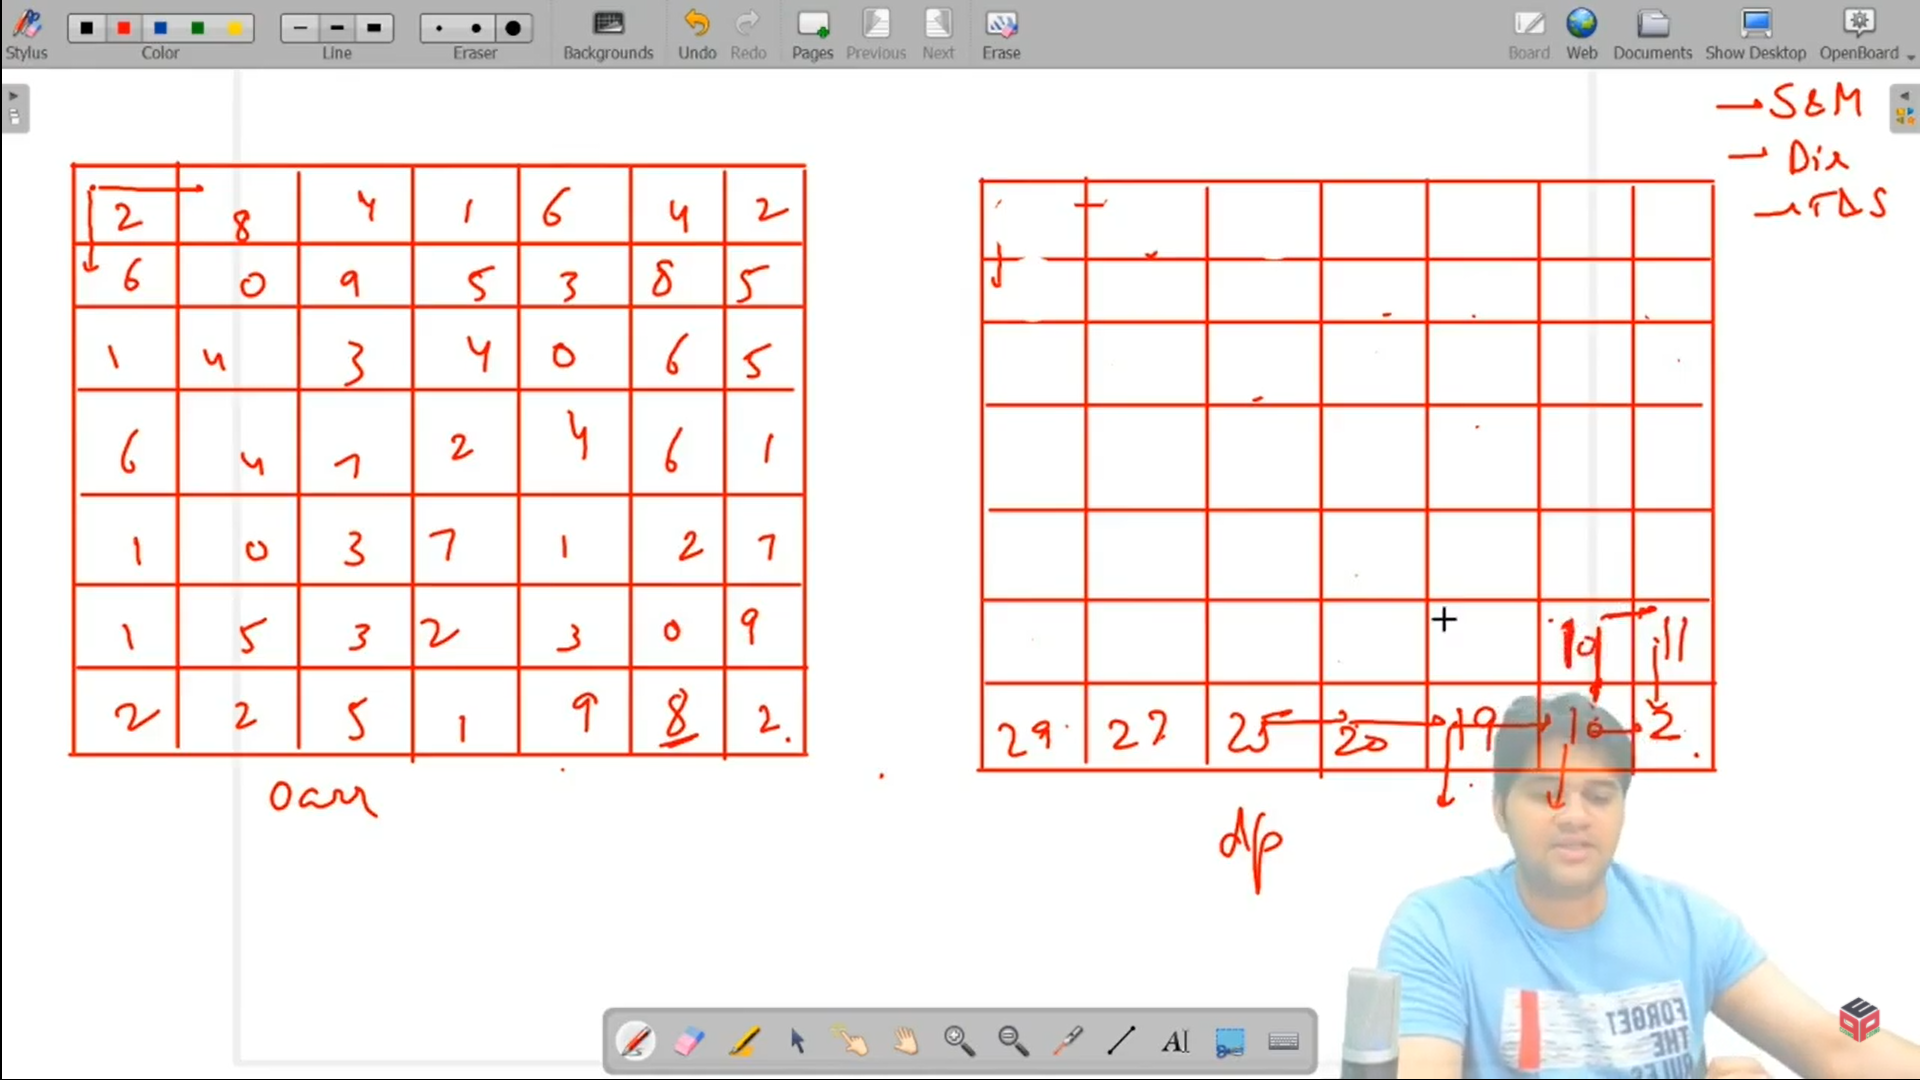 Stylus Color Line Eraser Backgrounds Undo Redo Pages Previous Next Erase Board Web Documents Show Desktop OpenBoard
S&M
Dir
T&S
2 8 4 1 6 4 2
6 0 9 5 3 8 5
1 4 3 4 0 6 5
6 4 7 2 4 6 1
1 0 3 7 1 2 7
1 5 3 2 3 0 9
2 2 5 1 9 8 2.
10 11
29 27 25 20 19 10 2
dp
FORGET
THE
RULES